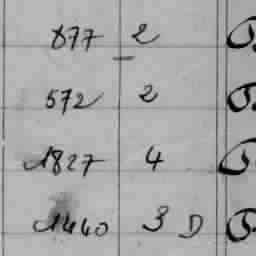 877 2
572 2
1827 4
1440 3 D